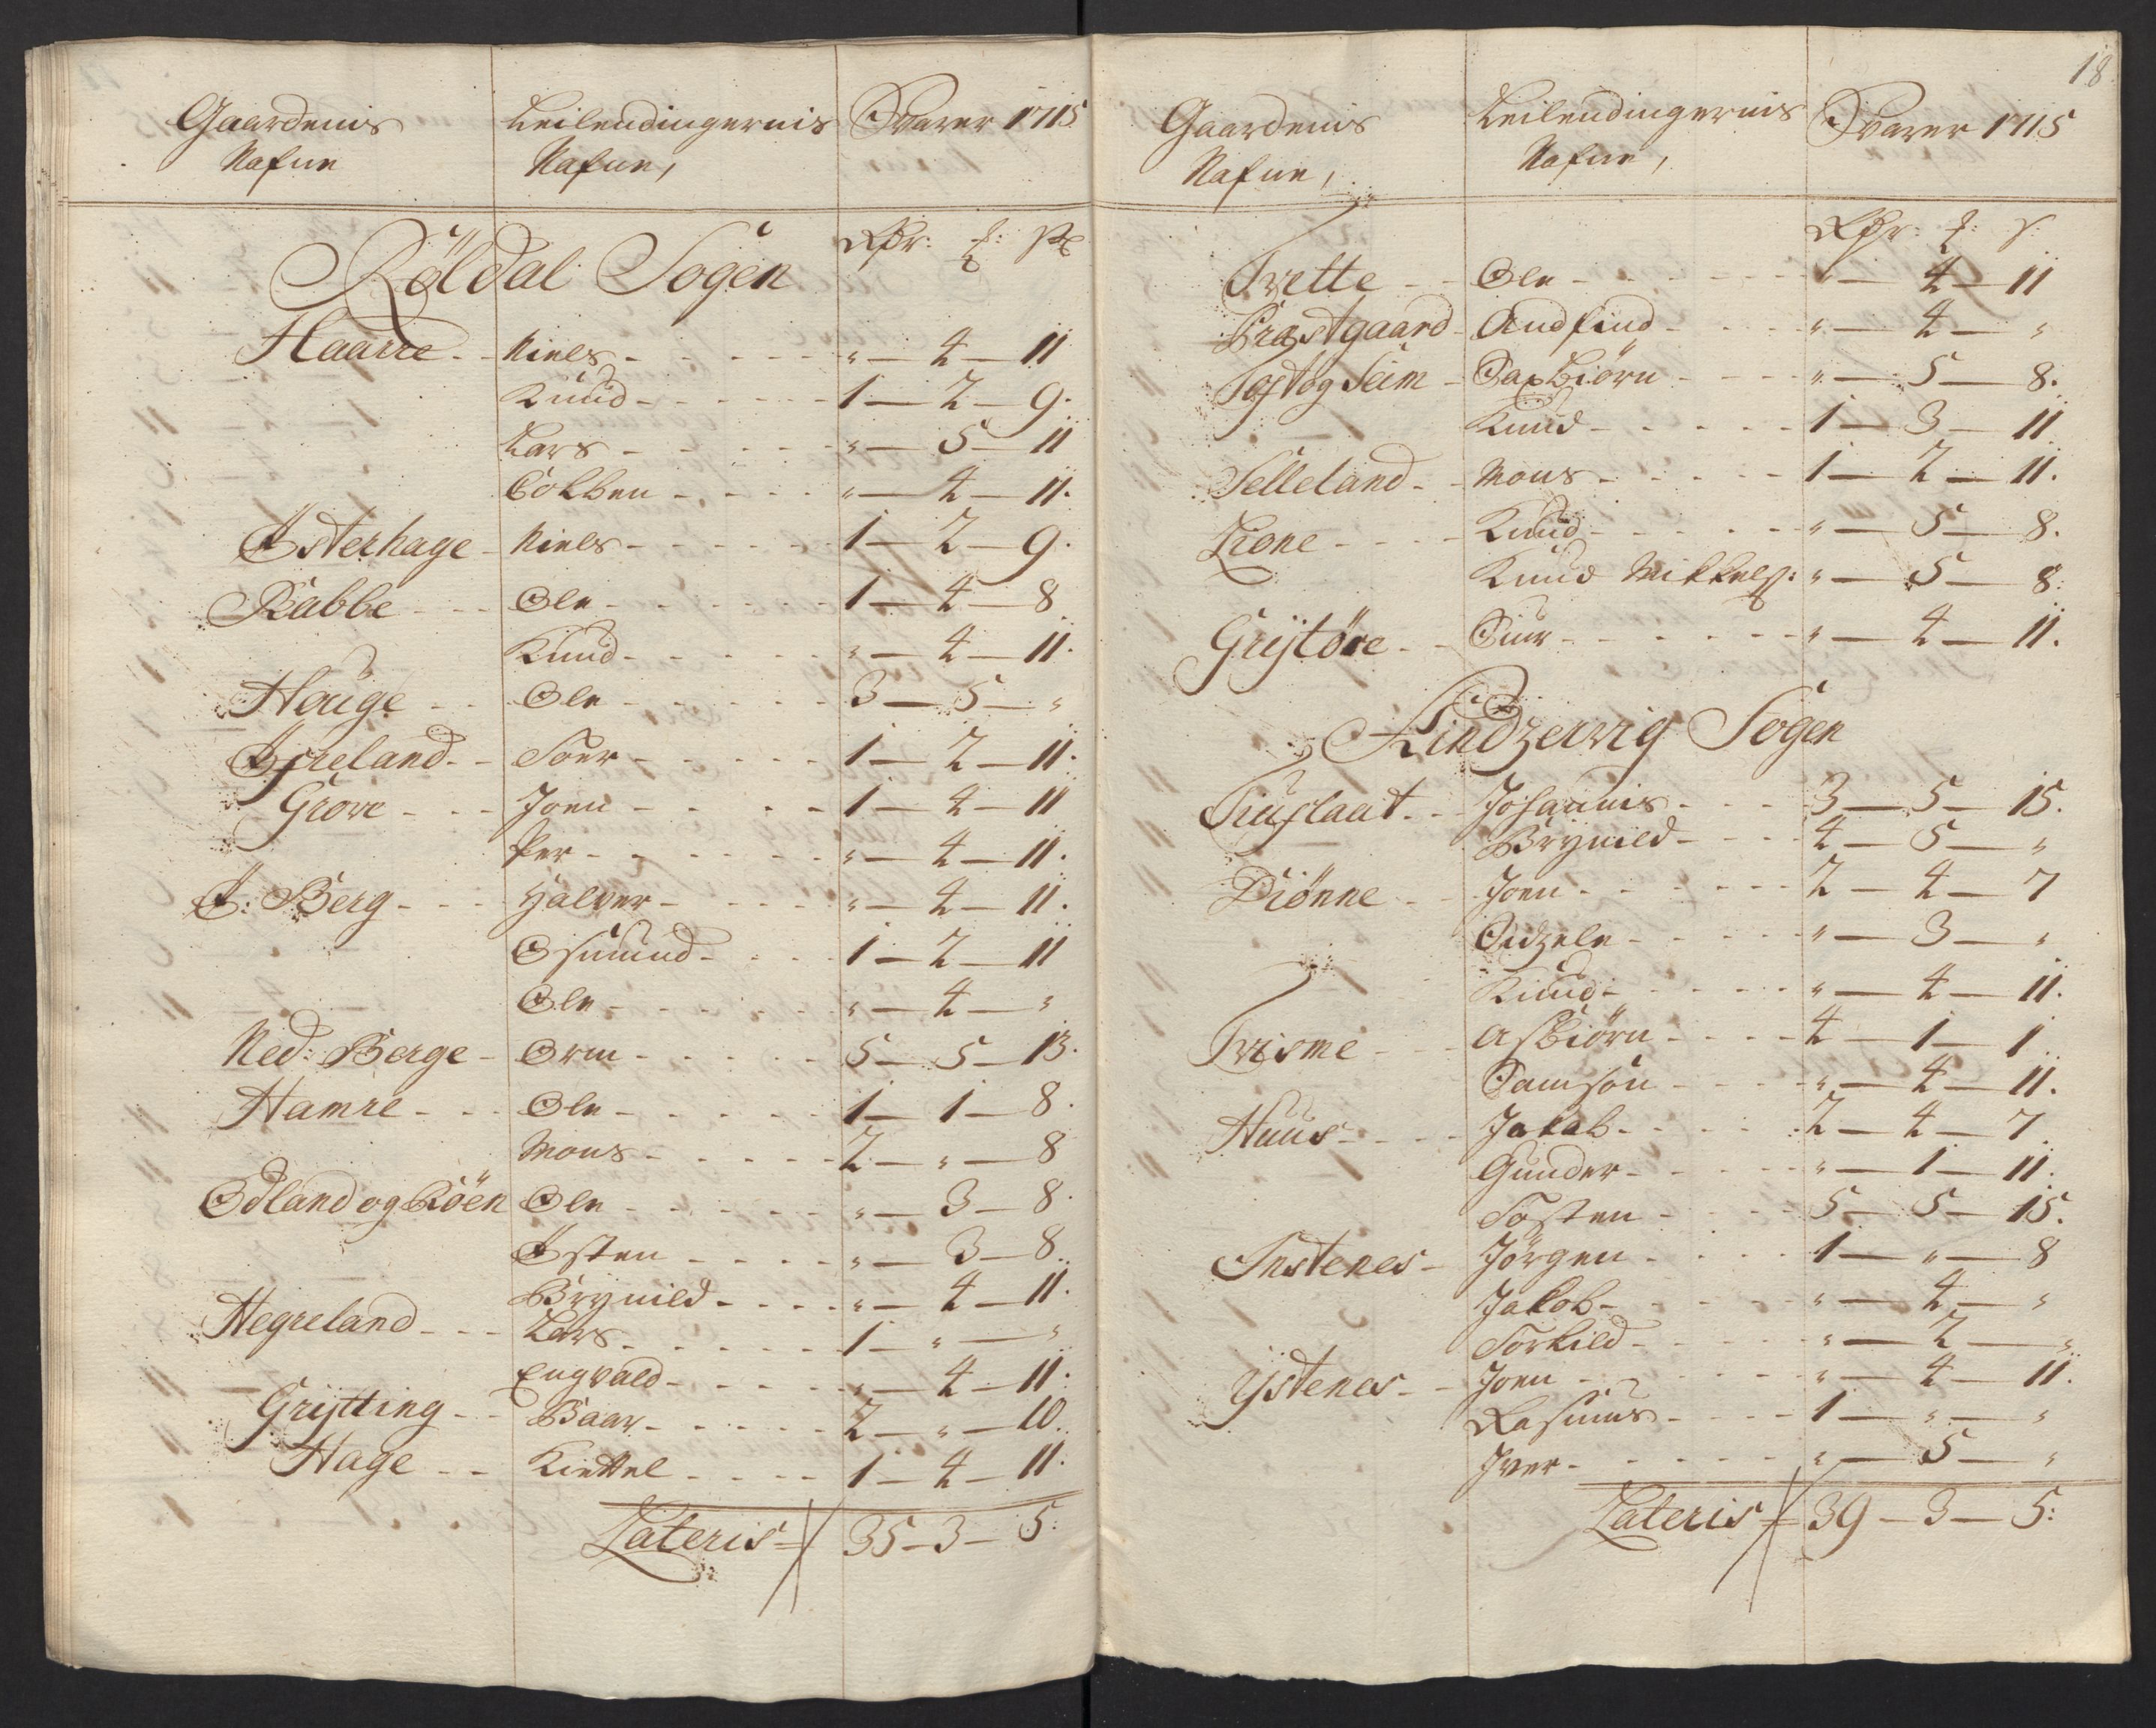 Gaardenis Nafne | Leilendingernis Nafne, | Svarer 1715
Rdr: ₰: s
Röldal Sogen
Haarre - - Niels - - - - - „ — 4 — 11
Knud - - - - - 1 — 2 — 9.
Lars - - - - - „ — 5 — 11
Colben - - - - „ — 4 — 11.
Østerhage - Niels - - - - - 1 — 2 — 9.
Rabbe - - - Ole - - - - - 1 — 4 — 8
Knud - - - - - „ — 4 — 11.
Houge - - Ole - - - - - 3 — 5 — „
Joreland - - Toer - - - - - 1 — 2 — 11.
Grove - - - Joen - - - - 1 — 4 — 11
Per - - - - - „ — 4 — 11.
Ø: Berg - - - Halver - - - - „ — 4 — 11.
Osmund - - - - 1 — 2 — 11
Ole - - - - - „ — 4 — „
Ned: Berge - Orm - - - - - 5 — 5 — 13.
Hamre - - - Ole - - - - - 1 — 1 — 8.
Mons - - - - - 2 — „ — 8
Odland og Röen Ole - - - - - „ — 3 — 8.
Østen - - - - „ — 3 — 8.
Brynild - - - - „ — 4 — 11.
Hegreland - - - Lars - - - - - 1 — „ — „
Engvald - - - - „ — 4 — 11.
Grijtting - - Baar - - - - - 2 — „ — 10.
Hage - - Kiettel - - - - 1 — 4 — 11.
Lateris 35 — 3 — 5:
18
Gaardenis Nafne, | Leilendingernis Nafne, | Svarer 1715
Rdr: ₰: s:
Tvette - - Ole - - - - - „ — 4 — 11
Præstgaard - Andfind - - - - „ — 4 — „
Toft og Seim - Saxbiörn - - - - „ — 5 — 8.
Knud - - - - - 1 — 3 — 11
Selleland - - Mons - - - - - 1 — 2 — 11.
Lione - - - - Knud - - - - - „ — 5 — 8.
Knud Mikkels: „ — 5 — 8:
Grijtöre - - Siur - - - - - „ — 4 — 11.
Kindzervig Sogen
Tiuflaat - - Johannis - - - 3 — 5 — 15.
Brynild - - - 4 — 5 — „
Diönne - - Joen - - - - - 2 — 4 — 7
Sidzele - - - - „ — 3 — „
Knud - - - - - „ — 4 — 11.
Tvisme - - - Asbiörn - - - - 4 — 1 — 1
Samson - - - - „ — 4 — 11.
Huus - - - - Jakob - - - - 2 — 4 — 7
Gunder - - - - „ — 1 — 11.
Tosten - - - - 5 — 5 — 15.
Instenes - Jörgen - - - - 1 — „ — 8
Jakob - - - - - „ — 4 — „
Torkild - - - - „ — 2 — „
Ystenes - - Joen - - - - - „ — 4 — 11.
Rasmus - - - - 1 — „ — „
Iver - - - - - „ — 5 — „
Lateris 39 — 3 — 5: